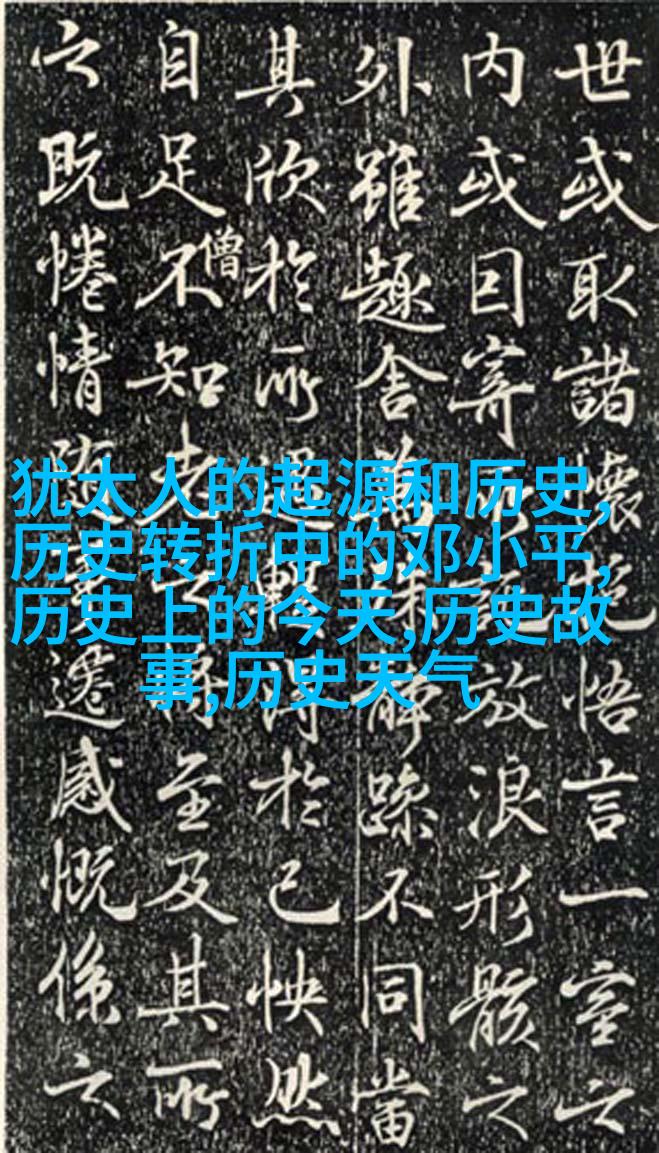 世或取諸懷抱悟言一室之
内或因寄所託放浪形骸之
外雖趣舍萬殊静躁不同當
其欣於所遇暫得於己怏然
自足不知老之将至及其所
僧
之既惓情隨事遷感慨係之
犹太人的起源和历史,
历史转折中的邓小平,
历史上的今天,历史故
事,历史天气